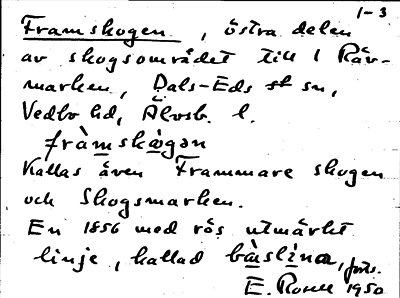 1-3
Framskogen, östra delen
av skogsområdet till 1 Räv-
marken, Dals-Eds sn,
Vedbo hd, Älvsb. l.
fràmskògən
Kallas även Frammare skogen
och Skogsmarken.
En 1856 med rös utmärkt
linje, kallad bàslína, forts.
E. Rosell 1950